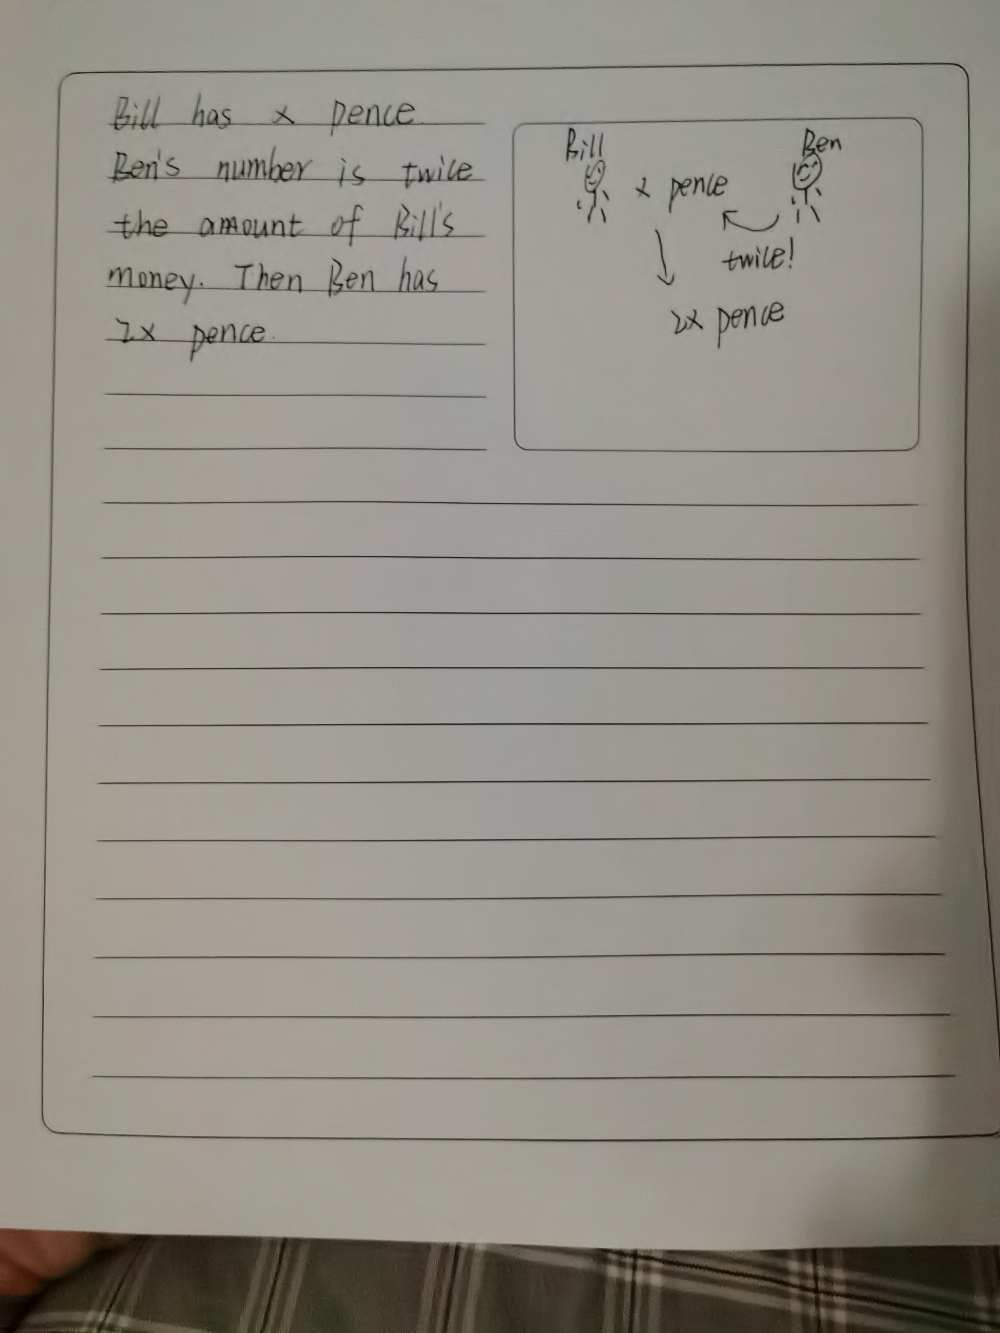 Bill has x pence
Ben's number is twice
the amount of Bill's
money. Then Ben has
2x pence.
Bill
Ben
x pence
twice!
2x pence